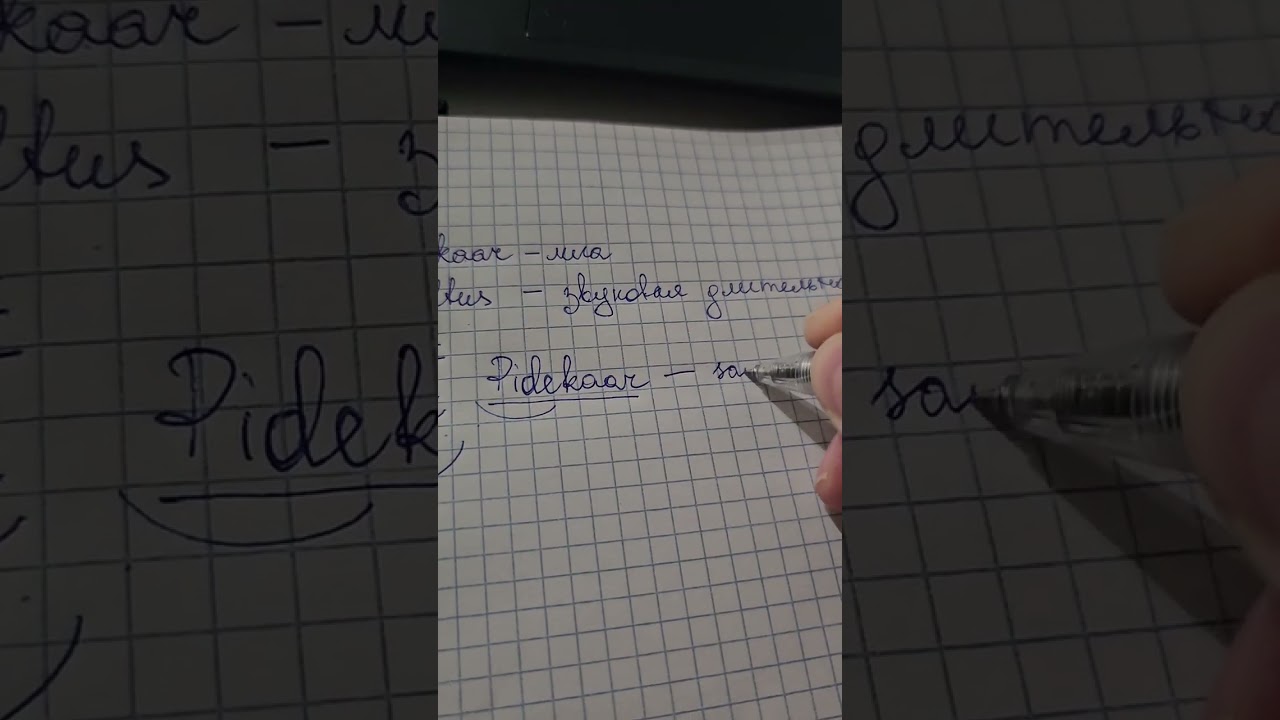 kaar – лига
tus – звуковая длительн
Pidekaar – за